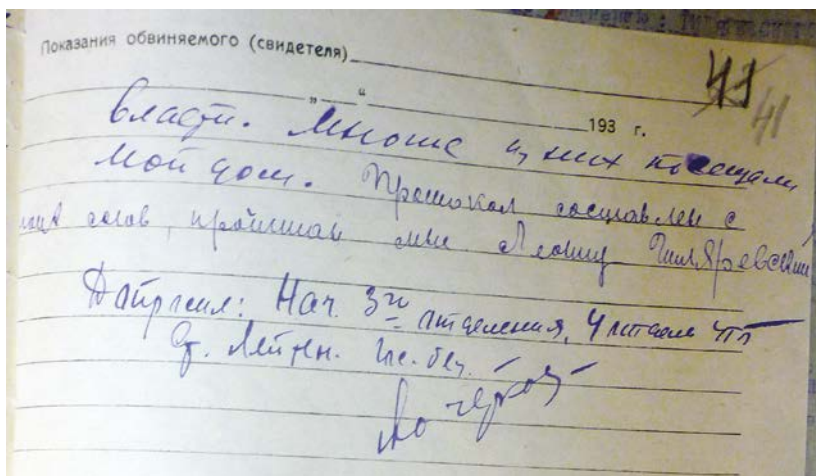 Показания обвиняемого (свидетеля)
41
41
„ “ 193 г.
власти. Многие из них посещали
мой дом. Протокол составлен с
моих слов, прочитан мне Леонид Гиляревский
Допросил: Нач. 3го отделения, 4
Ст. Лейтен. Гос. Без.